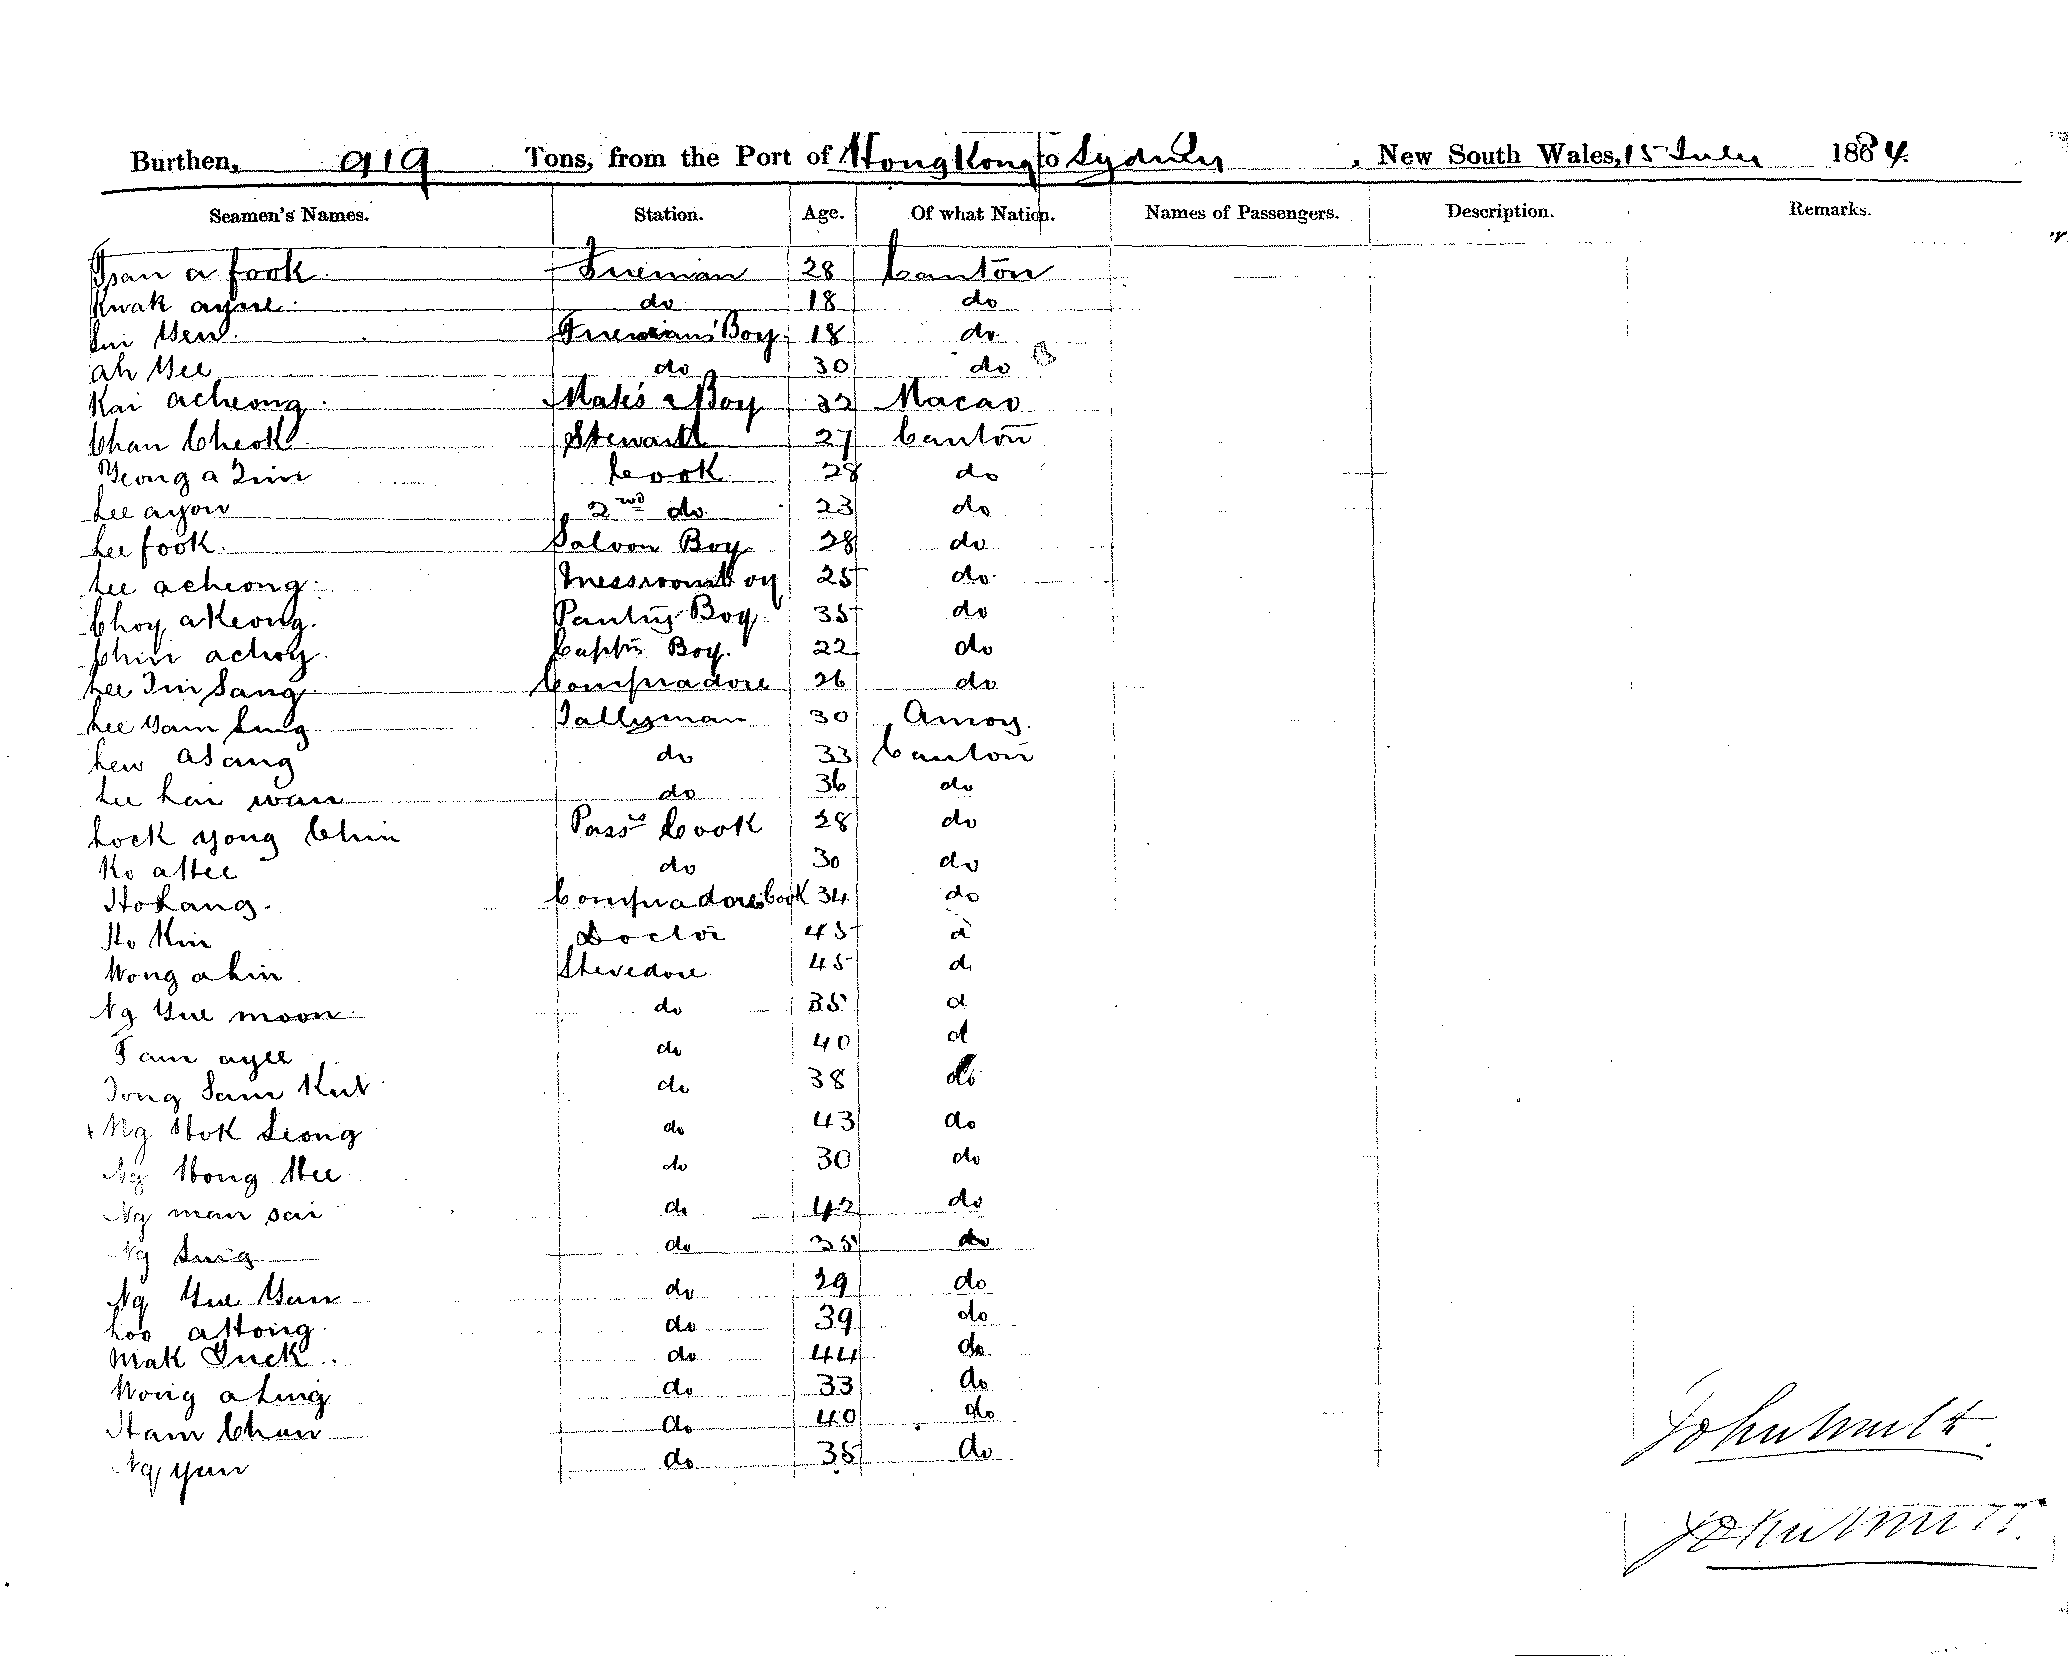 Burthen, 919 Tons, from the Port of Hong Kong to Sydney, New South Wales, 15 July 1884.
Seamen's Names. Station. Age. Of what Nation. Names of Passengers. Description. Remarks.
Tsan a fook Fireman 28 Canton
Kwak ayne do 18 do
Lui Yew Fireman's Boy 18 do
ah Yee do 30 do
Kai acheong Mate's Boy 32 Macao
Chan Cheok Steward 27 Canton
Yeong a Tim Cook 28 do
Lee ayow 2nd do 23 do
Lee fook Saloon Boy 28 do
Lee acheong Messroom Boy 25 do
Choy aKeong Pantry Boy 35 do
Chin achoy Captns Boy 22 do
Lee Tin Sang Compradore 26 do
Lee Yam Sing Tallyman 30 Amoy
Lew asang do 33 Canton
Lee hai wan do 36 do
Lock yong Chin Passrs Cook 28 do
Ko aHee do 30 do
Ho Lang Compradores Cook 34 do
Ho Kin Doctor 45 d
Wong a Lin Stevedore 45 d
Ng Yue moon do 35 d
Tam ayee do 40 d
Tong Sam Kut do 38 do
Ng Hok Leong do 43 do
Ng Hong Hee do 30 do
Ng man sai do 42 do
Ng Sing do 35 do
Ng Yue Yun do 29 do
Loo aHong do 39 do
Mak Tuck do 44 do
Wong a Ling do 33 do
Ham Chun do 40 do
Ng yun do 35 do
John
John